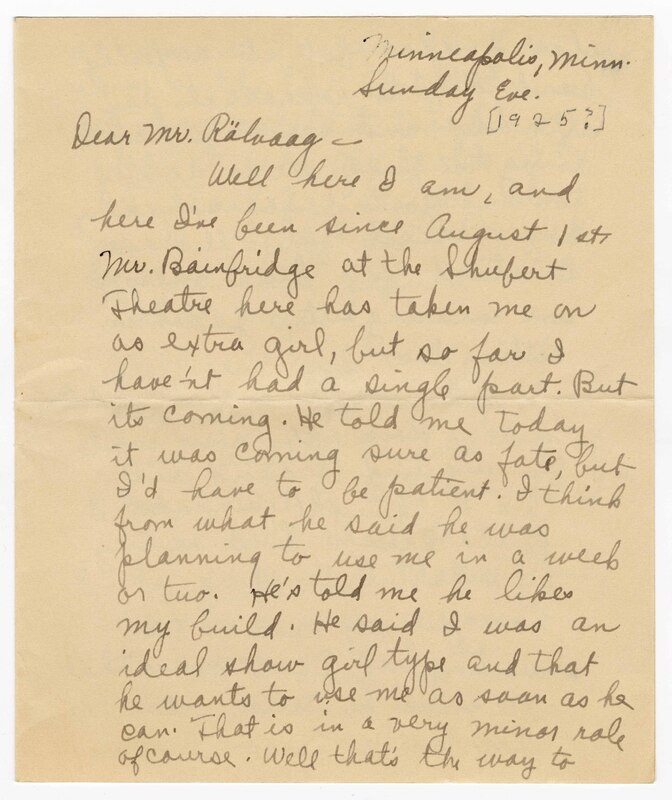 Minneapolis, Minn.
Sunday Eve.
[1925?]
Dear Mr. Rälvaag –
Well here I am, and
here I've been since August 1st.
Mr. Bainfridge at the Shubert
Theatre here has taken me on
as extra girl, but so far I
have'nt had a single part. But
its coming. He told me today
it was coming sure as fate, but
I'd have to be patient. I think
from what he said he was
planning to use me in a week
or two. He's told me he likes
my build. He said I was an
ideal show girl type and that
he wants to use me as soon as he
can. That is in a very minor role
of course. Well that's the way to